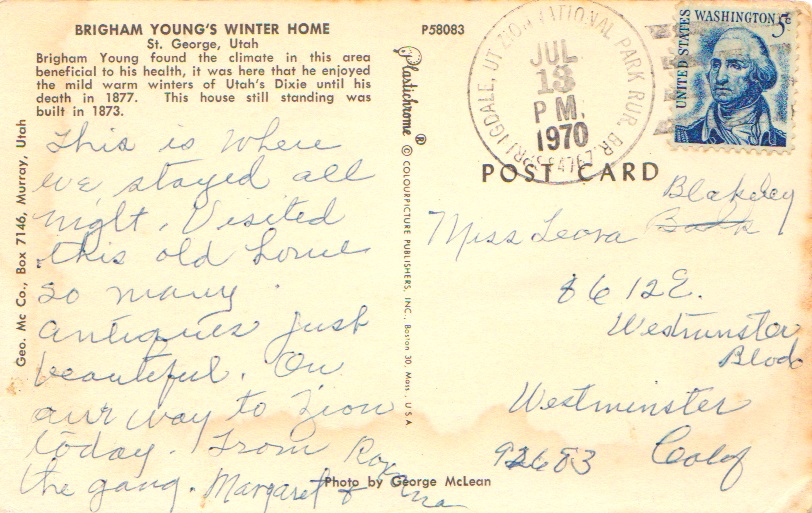 BRIGHAM YOUNG'S WINTER HOME
St. George, Utah
Brigham Young found the climate in this area
beneficial to his health, it was here that he enjoyed
the mild warm winters of Utah's Dixie until his
death in 1877. This house still standing was
built in 1873.
This is where
we stayed all
night. Visited
this old home
so many
antiques just
beautiful. On
our way to Zion
today. From
the gang. Margaret &
Geo. Mc Co., Box 7146, Murray, Utah
Plastichrome ® © COLOURPICTURE PUBLISHERS, INC., Boston 30, Mass., U S A
Photo by George McLean
P58083
SPRINGDALE, UT. ZION NATIONAL PARK RUR. BR.
JUL
13
P M.
1970
UNITED STATES
WASHINGTON 5c
POST CARD
Blakeley
Miss Leora
8612 E.
Westminster
Blvd
Westminster
92683 Calif